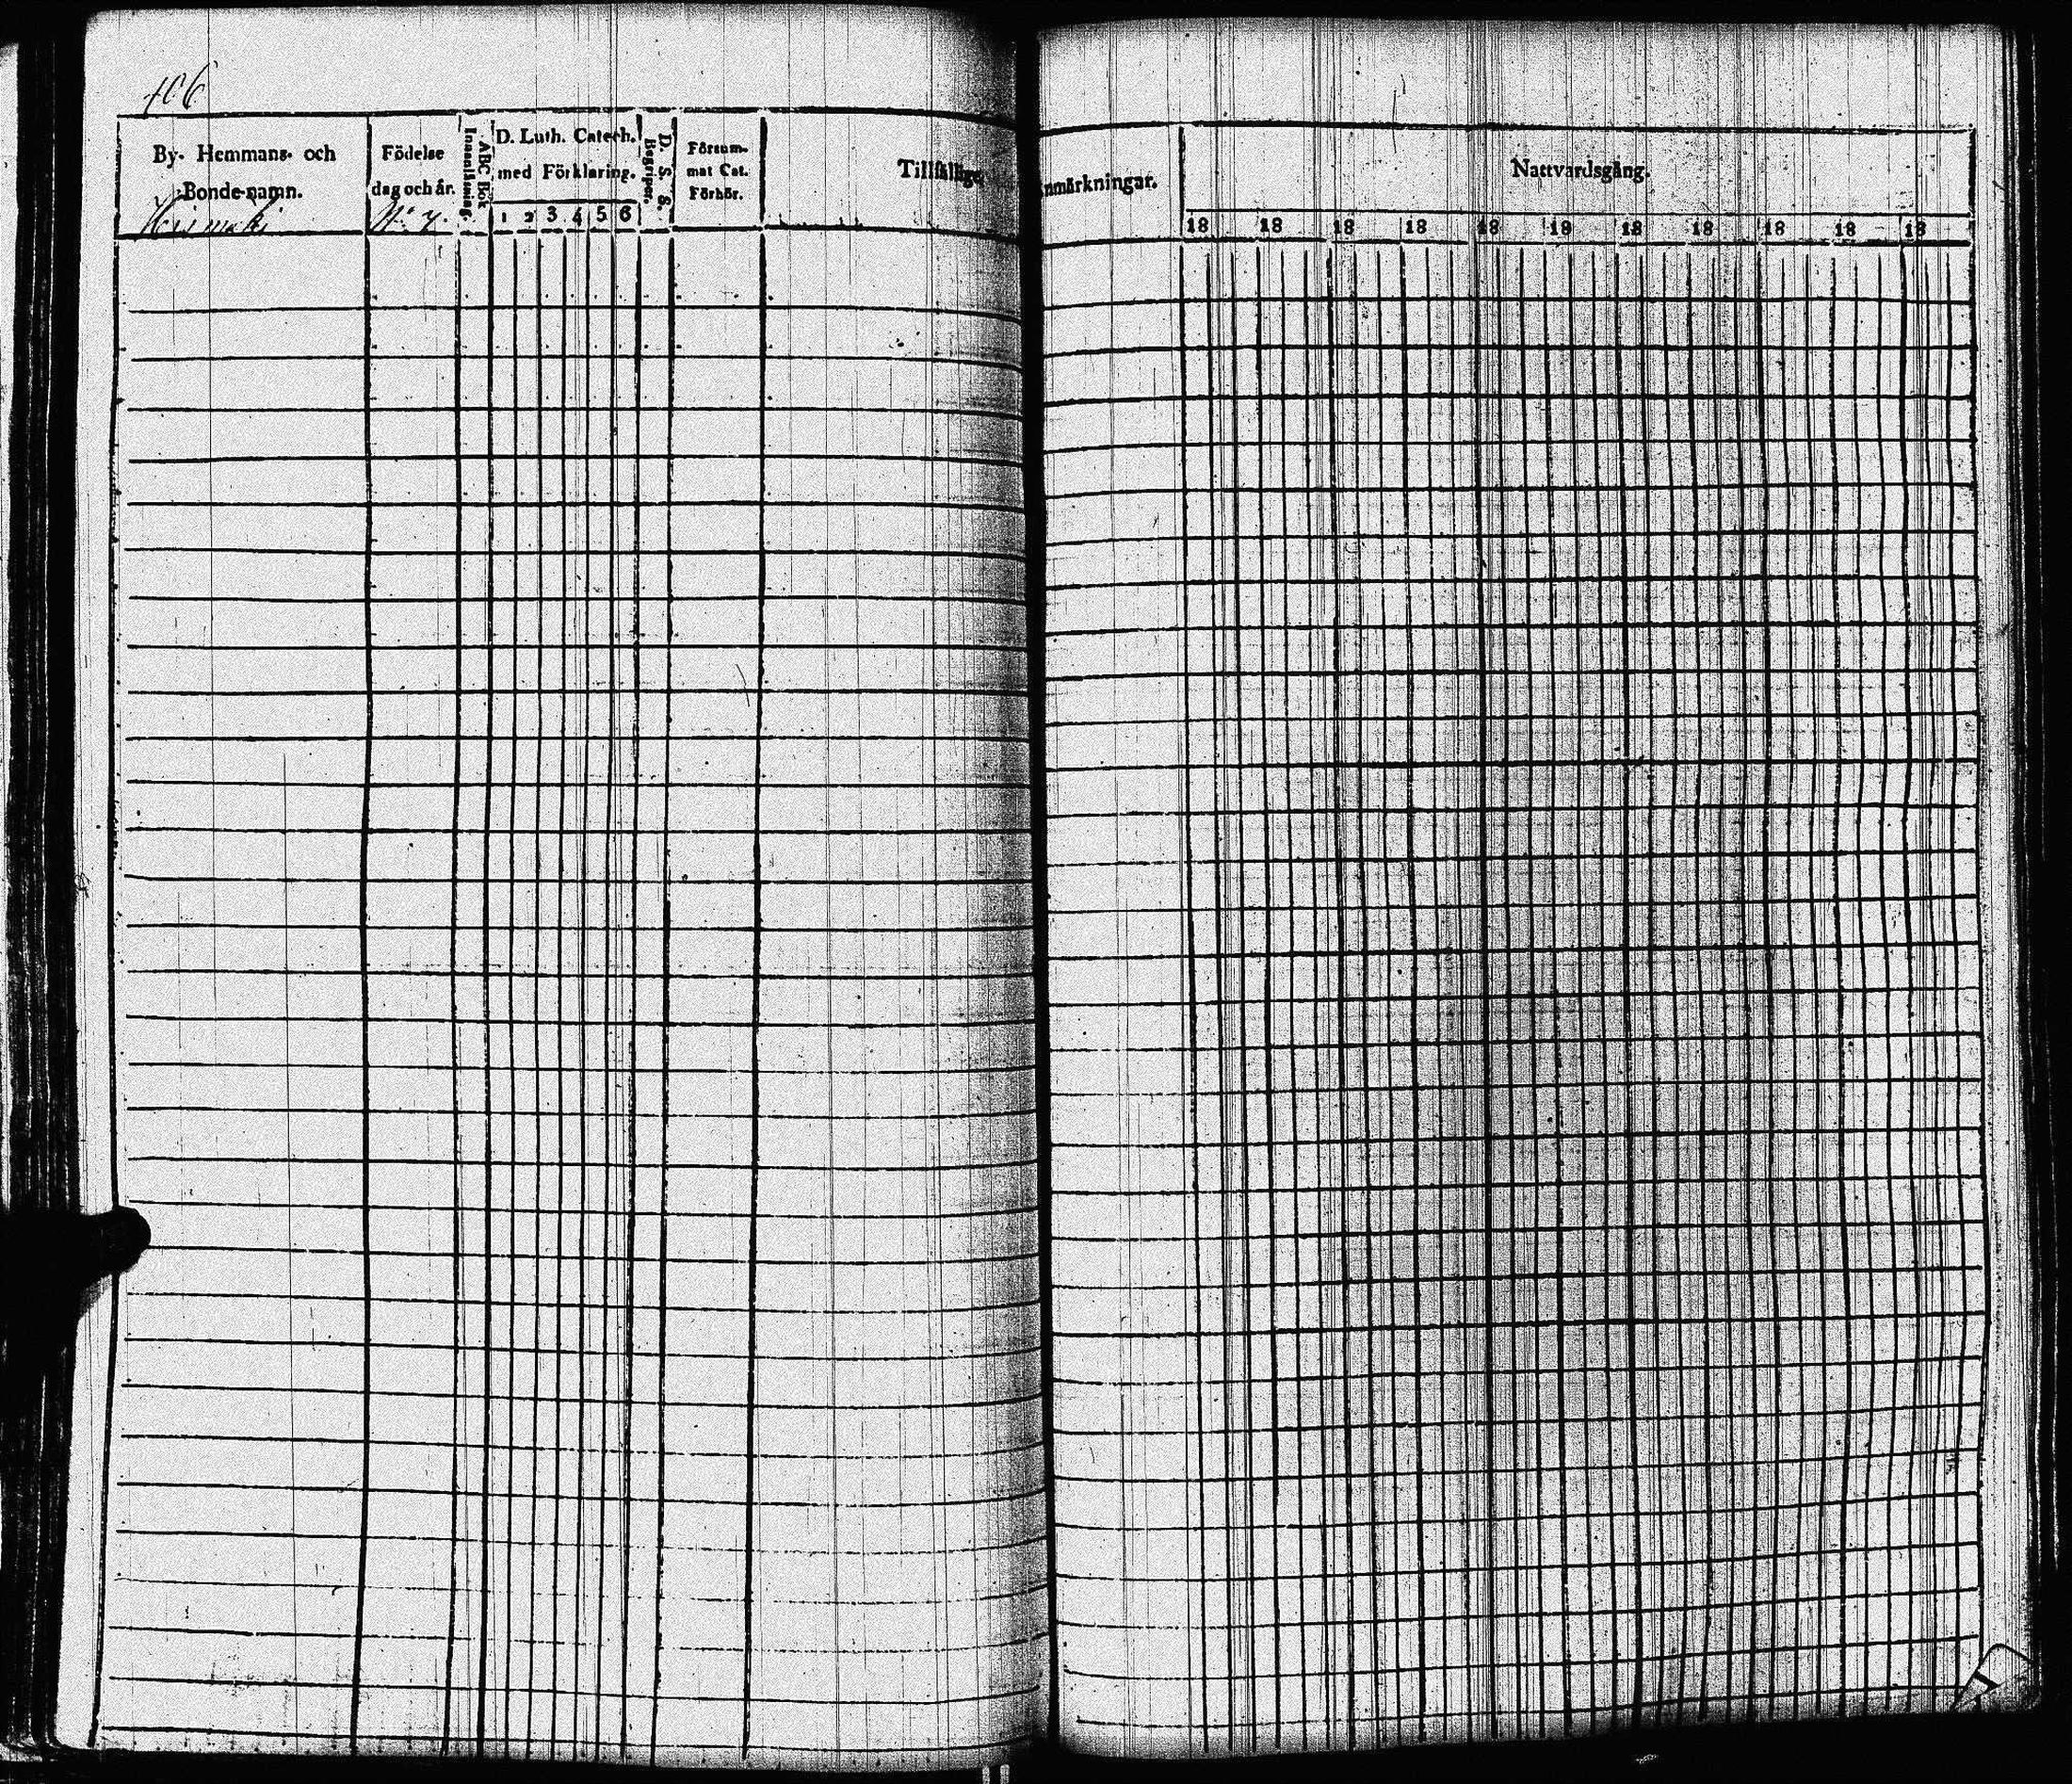 106
By- Hemmans- och
Bonde-namn.
Födelse
dag och år.
Innanläsning.
ABC Bok
D. Luth. Catech.
med Förklaring.
1 2 3 4 5 6
D. S. S.
Begriper.
Försum-
mat Cat.
Förhör.
Tillfällige
Anmärkningar.
Nattvardsgång.
18 18 18 18 18 18 18 18 18 18 18